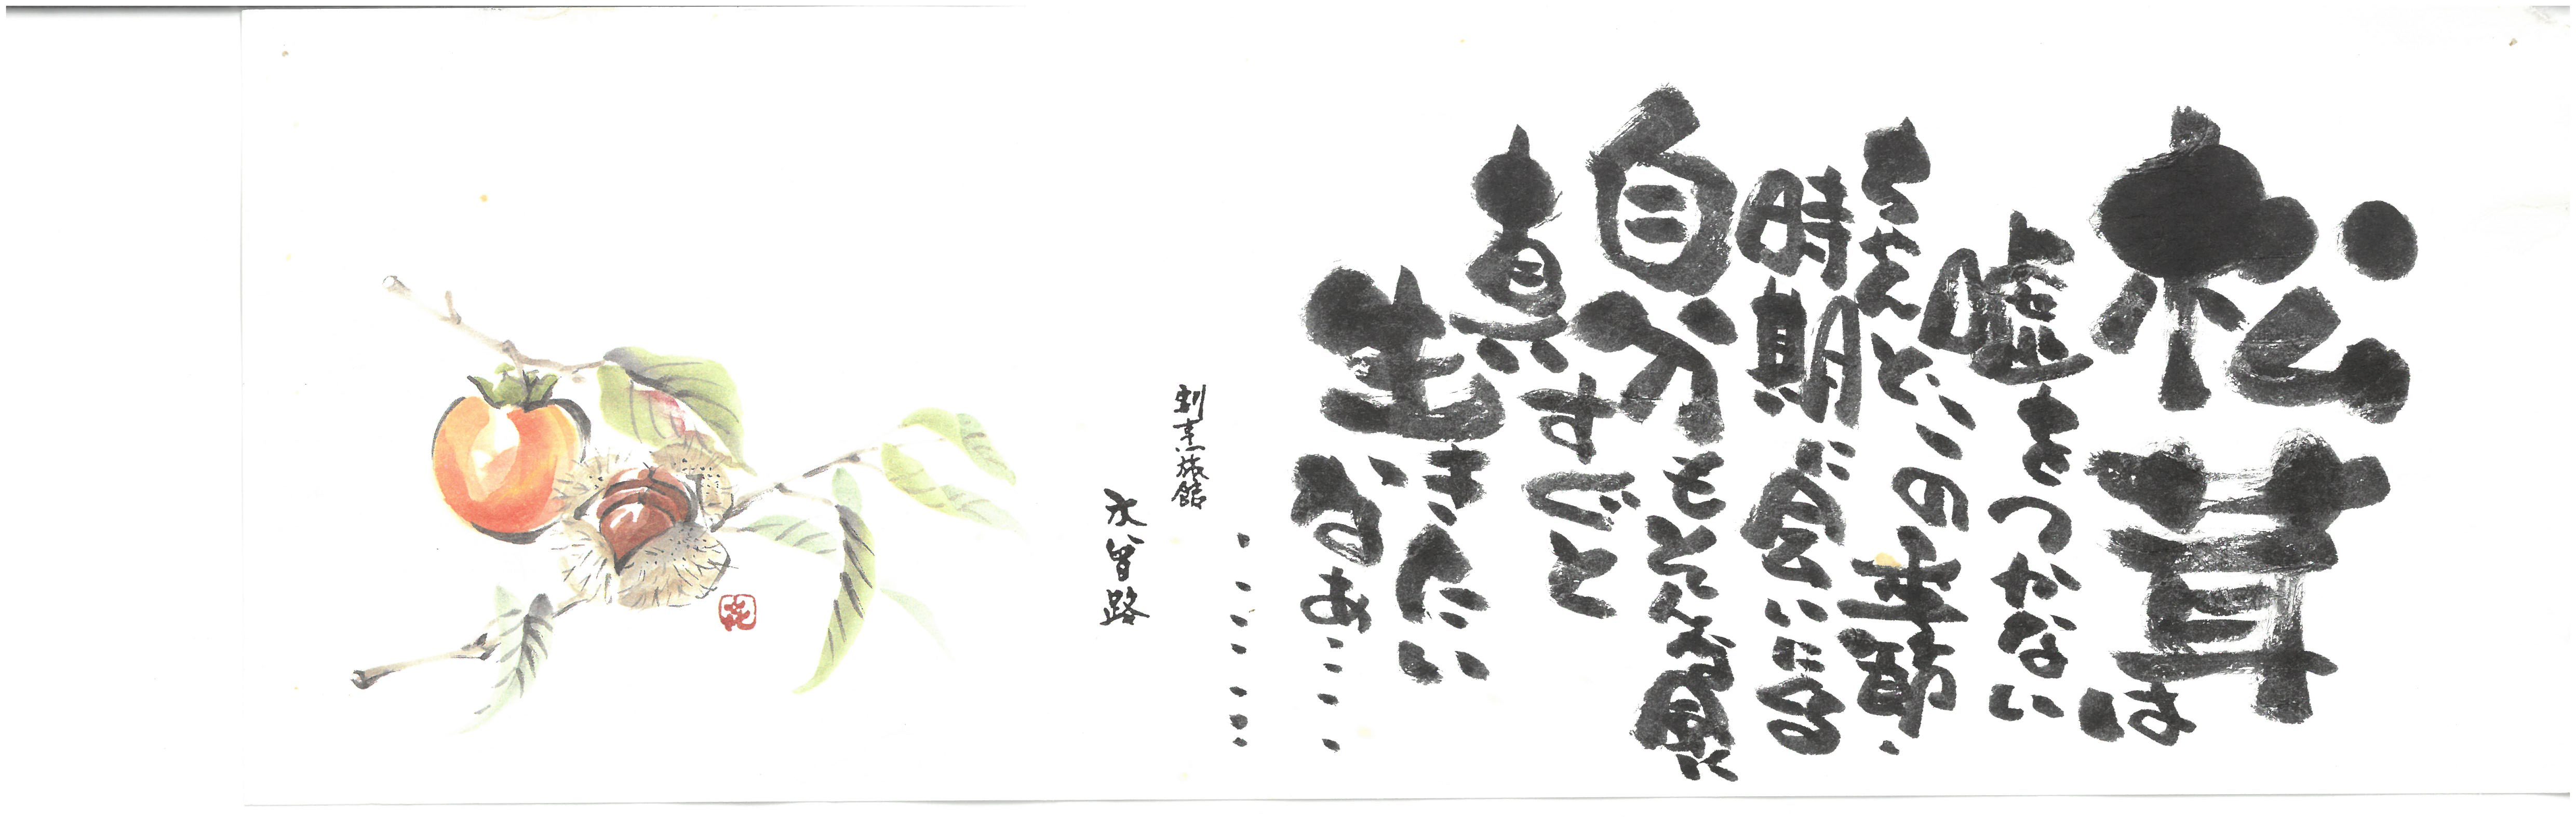 松茸は
嘘をつかない
ちゃんとこの季節、
時期に会いにくる
自分もそんな風に
真すぐと
生きたい
なあ……
……
割烹旅館
木曽路
花